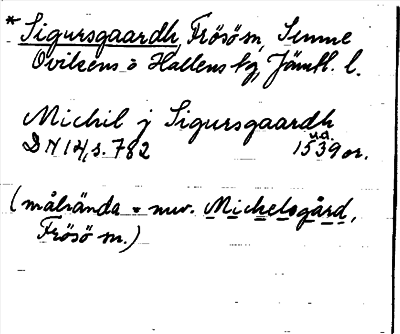 *Sigursgaardh, Frösö sn, Sunne
Ovikens o Hallens tg, Jämtl. l.
Michil j Sigursgaardh
u.å.
DN 14, s. 782 1539 or.
(målrända = nuv. Michelsgård,
Frösö sn.)